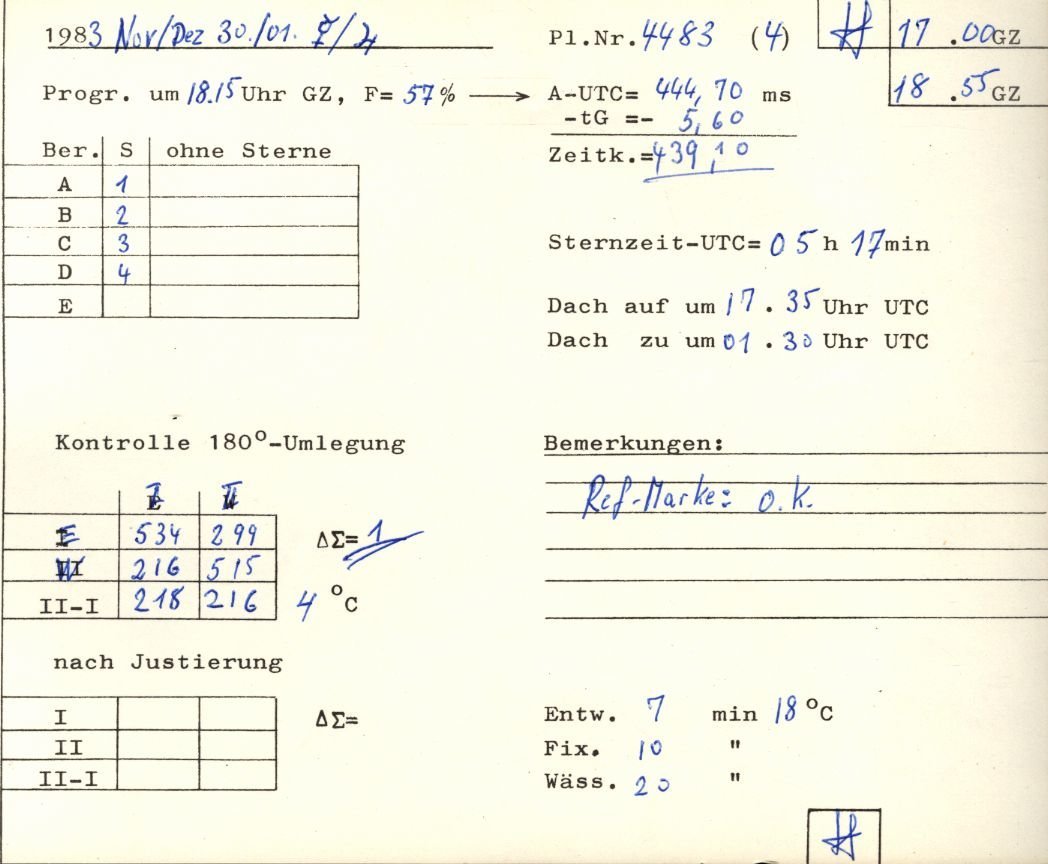 1983 Nov/Dez 30./01. ☿/♃ Pl.Nr. 4483 (4) 17 .00 GZ
18 .55 GZ
Progr. um 18.15 Uhr GZ, F= 57% → A-UTC= 444,70 ms
-tG =- 5,60
Zeitk.= 439,10
Ber. S ohne Sterne
A 1
B 2
C 3
D 4
E
Sternzeit-UTC= 05 h 17 min
Dach auf um 17 . 35 Uhr UTC
Dach zu um 01 . 30 Uhr UTC
Kontrolle 180°-Umlegung
I II
E 534 299 ΔΣ= 1
W 216 515
II-I 218 216 4 °C
Bemerkungen:
Ref-Marke: o.k.
nach Justierung
I ΔΣ=
II
II-I
Entw. 7 min 18 °C
Fix. 10 "
Wäss. 20 "